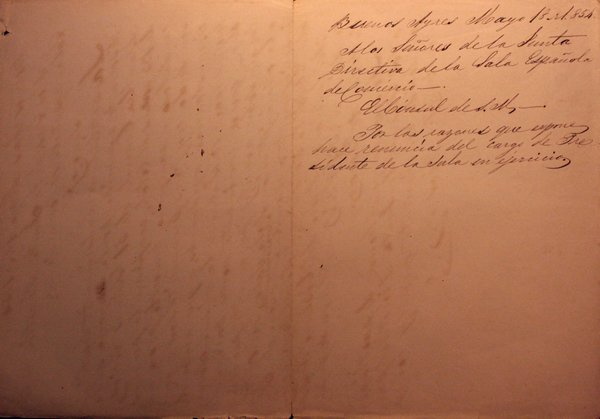 Buenos Ayres Mayo 13 1.854.
A los Señores de la Junta
Directiva de la Sala Española
de Comercio—.
El Cónsul de S. M.—
Por las razones que espone
hace renuncia del cargo de Pre
sidente de la Sala en ejercicio,